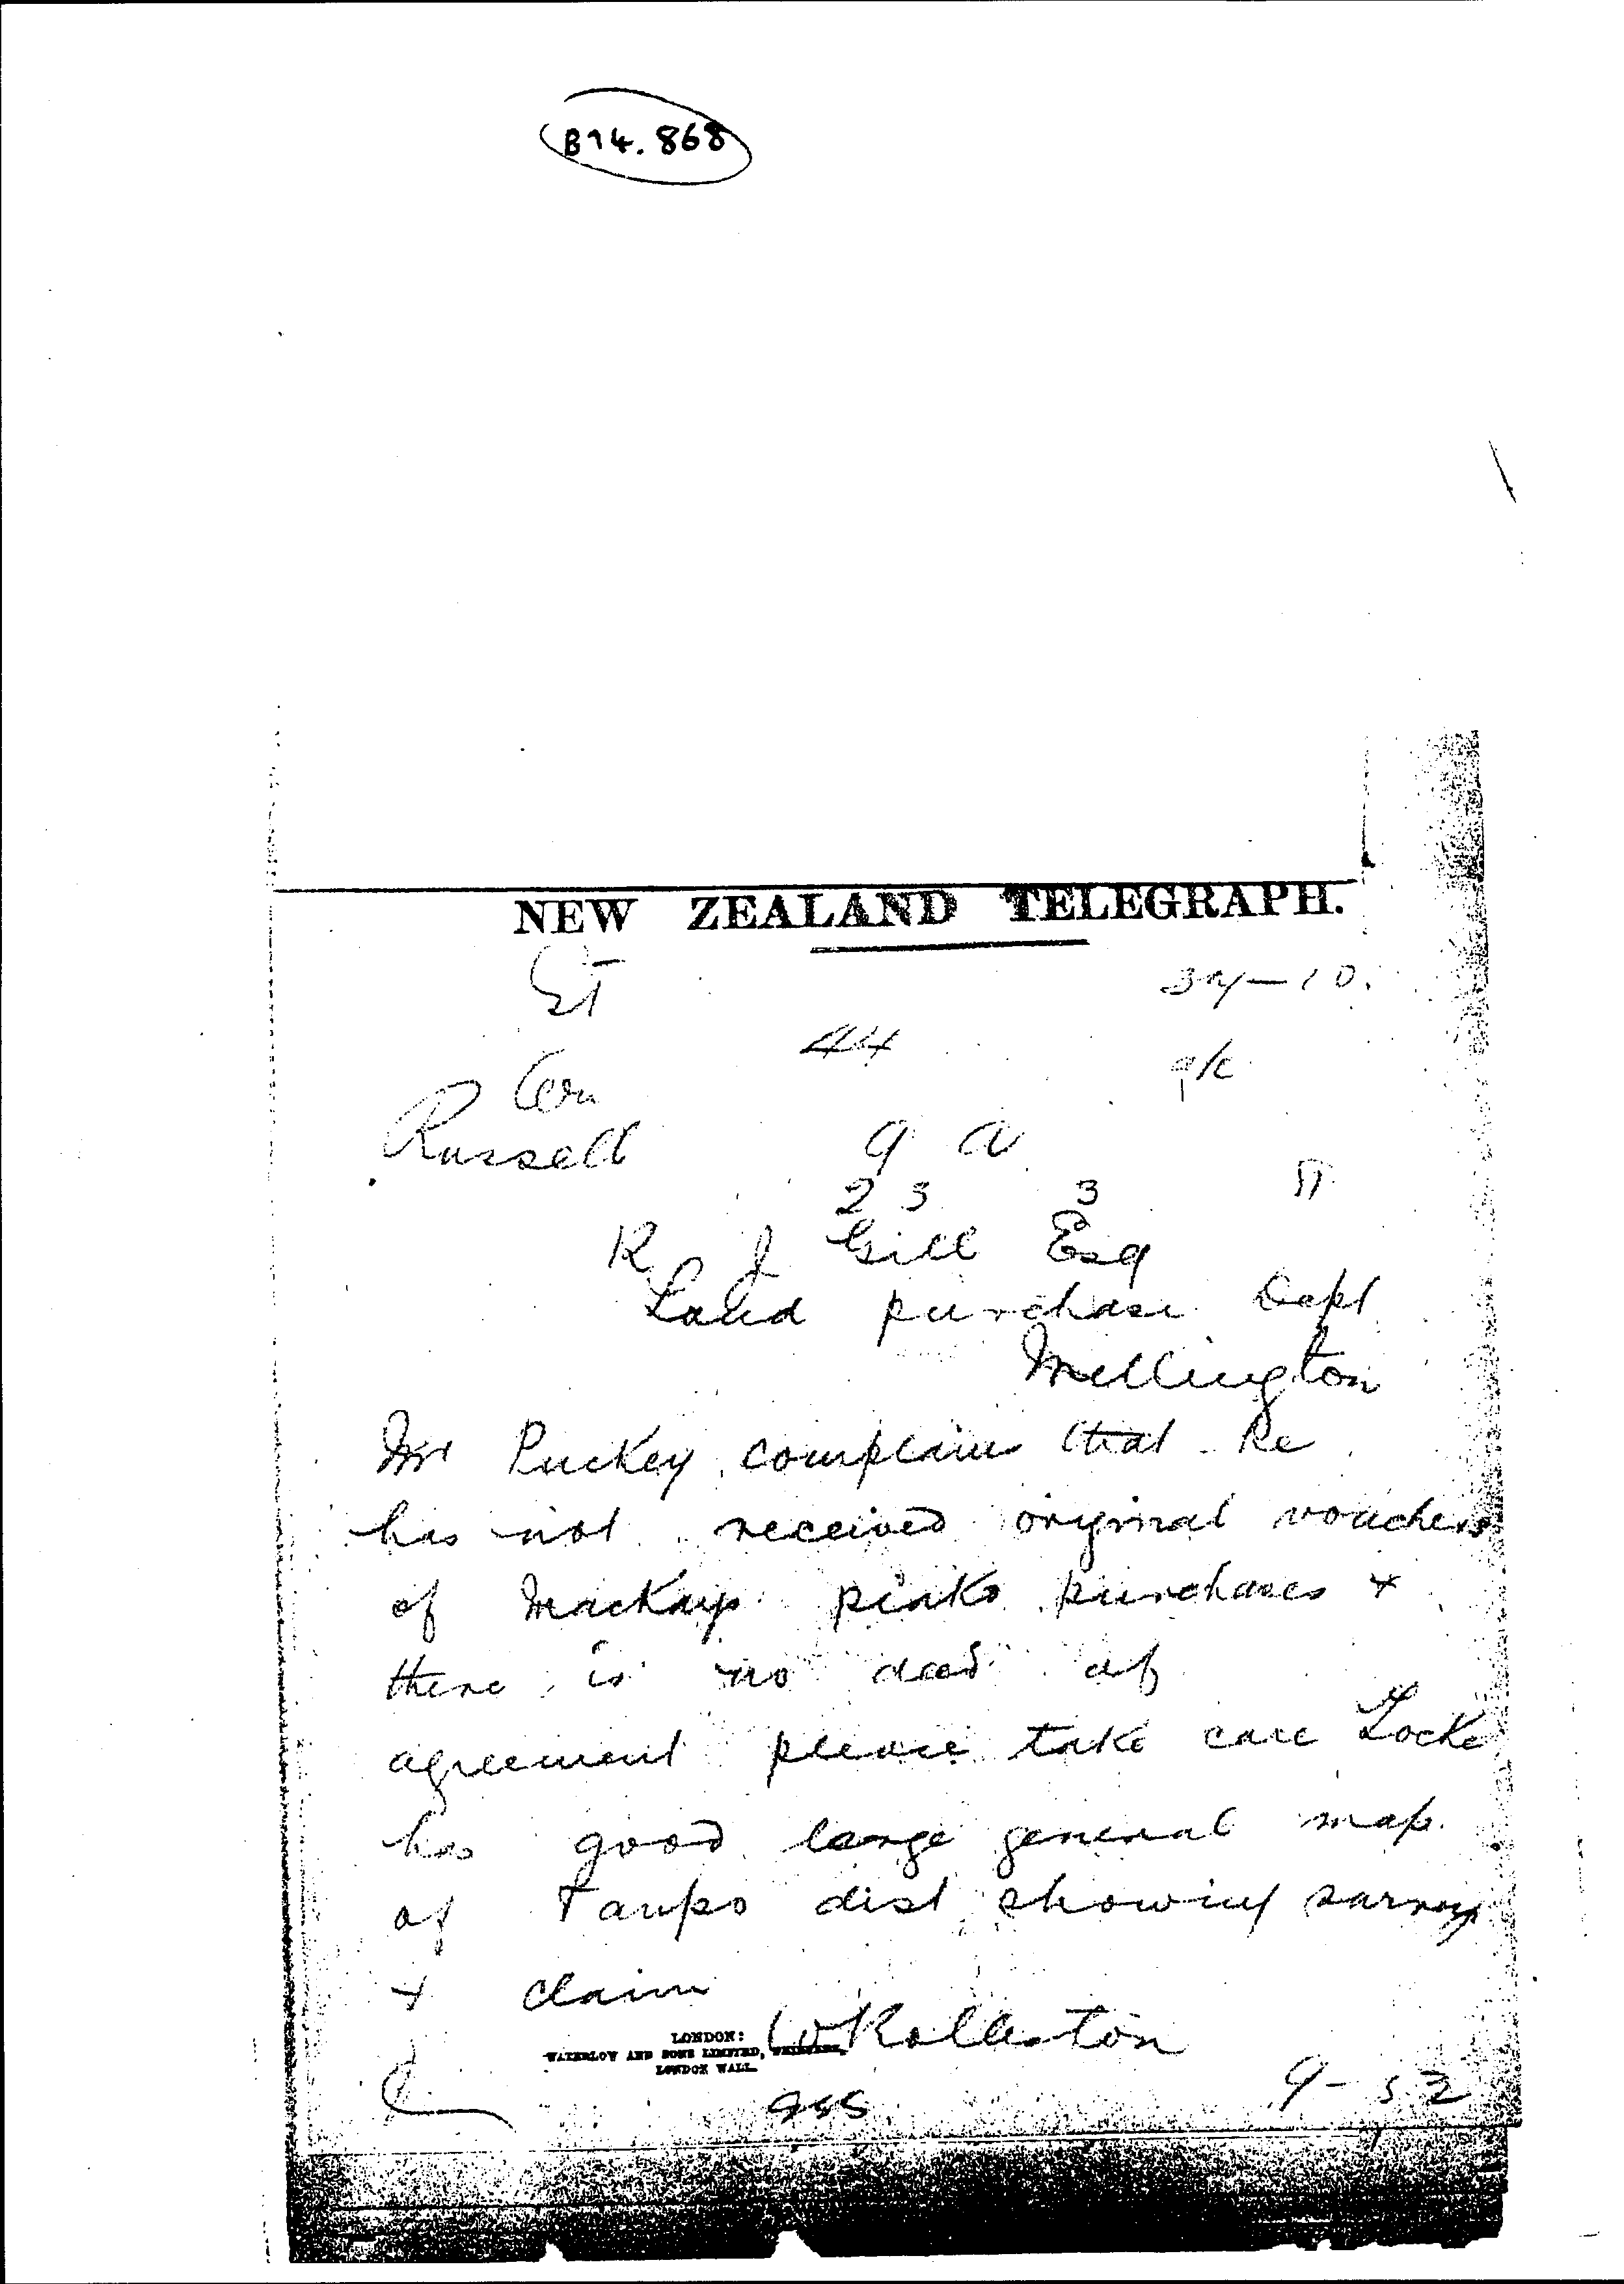 B14.868
NEW ZEALAND TELEGRAPH.
44
Russell
9 a
23 3
R J Gill Esq
Land purchase Dept
Wellington
Mr Puckey complains that he
has not received original vouchers
of Mackays piako purchases +
there is no deed of
agreement please take care Locke
has good large general map
of Taupo dist showing surveys
+ claim
W Rolleston
LONDON:
WATERLOW AND SONS LIMITED, PRINTERS,
LONDON WALL.